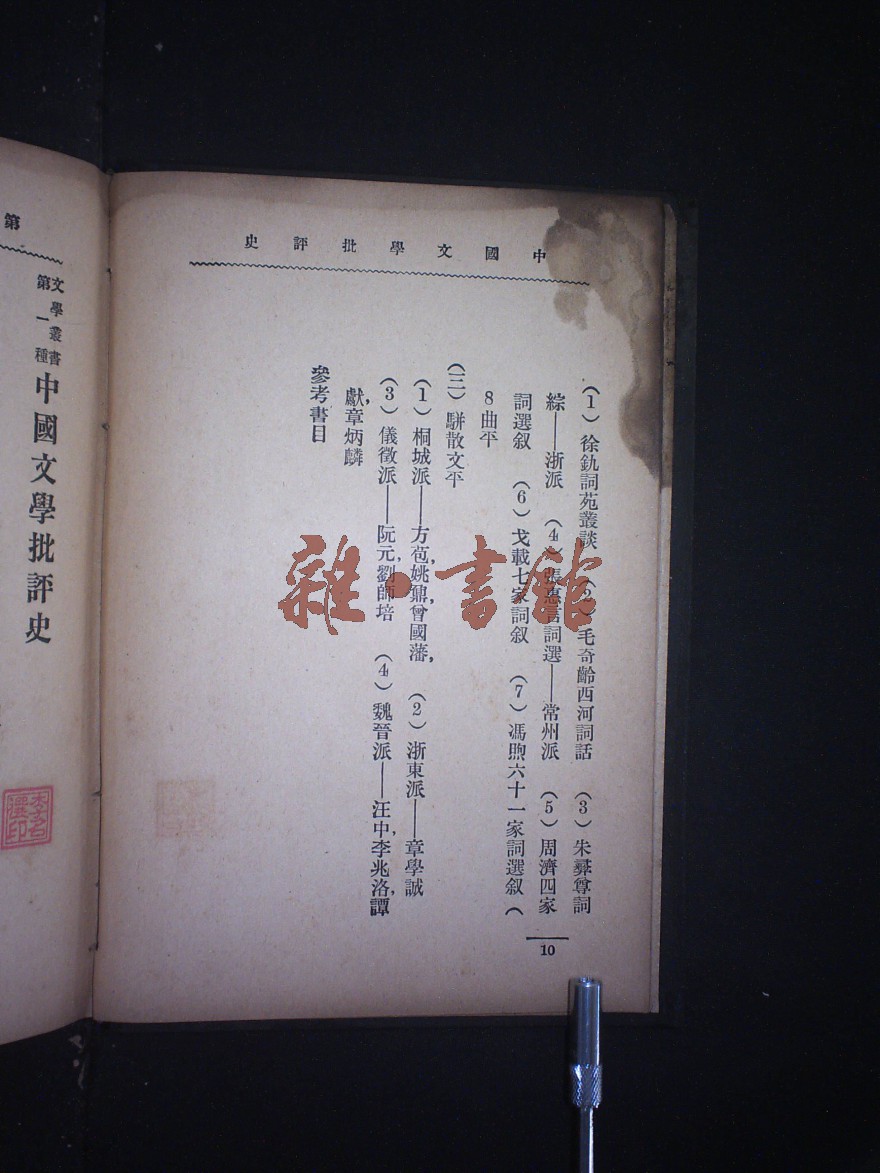 中國文學批評史
(1) 徐釚詞苑叢談 (2) 毛奇齡西河詞話 (3) 朱彝尊詞
綜——浙派 (4) 張惠言詞選——常州派 (5) 周濟四家
詞選叙 (6) 戈載七家詞叙 (7) 馮煦六十一家詞選叙 (
8曲平
(三) 駢散文平
(1) 桐城派——方苞,姚鼐,曾國藩, (2) 浙東派——章學誠
(3) 儀徵派——阮元,劉師培 (4) 魏晉派——汪中,李兆洛,譚
獻,章炳麟
參考書目
10
第
文學叢書
第一種
中國文學批評史
雜·書館